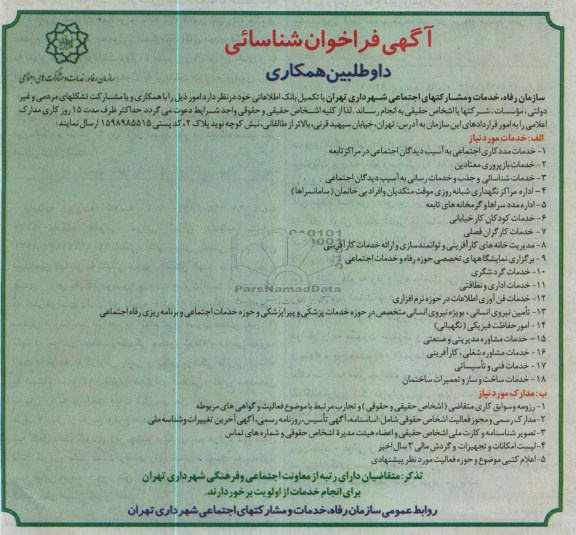 آگهی فراخوان شناسائی
داوطلبین همکاری
سازمان رفاه، خدمات و مشارکت‌های اجتماعی
سازمان رفاه، خدمات ومشارکتهای اجتماعی شهرداری تهران با تکمیل بانک اطلاعاتی خود در نظر دارد امور ذیل را با همکاری و یا مشارکت تشکلهای مردمی و غیر
دولتی، مؤسسات، شرکتها یا اشخاص حقیقی به انجام رساند. لذا از کلیه اشخاص حقیقی و حقوقی واجد شرایط دعوت می گردد حداکثر ظرف مدت ۱۵ روز کاری مدارک
اعلامی را به امور قراردادهای این سازمان به آدرس: تهران، خیابان سپهبد قرنی، بالاتر از طالقانی، نبش کوچه نوید پلاک ۲، کد پستی ۱۵۹۸۹۸۵۵۱۵ ارسال نمایند:
الف: خدمات مورد نیاز
۱- خدمات مددکاری اجتماعی به آسیب دیدگان اجتماعی در مراکز تابعه
۲- خدمات بازپروری معتادین
۳- خدمات شناسائی و جذب و خدمات رسانی به آسیب دیدگان اجتماعی
۴- اداره مراکز نگهداری شبانه روزی موقت متکدیان و افراد بی خانمان (سامانسراها)
۵- اداره مدد سراها و گرمخانه های تابعه
۶- خدمات کودکان کار خیابانی
۷- خدمات کارگران فصلی
۸- مدیریت خانه های کارآفرینی و توانمندسازی و ارائه خدمات کارآفرینی
۹- برگزاری نمایشگاههای تخصصی حوزه رفاه و خدمات اجتماعی
۱۰- خدمات گردشگری
۱۱- خدمات اداری و نظافتی
۱۲- خدمات فن آوری اطلاعات در حوزه نرم افزاری
۱۳- تأمین نیروی انسانی، بویژه نیروی انسانی متخصص در حوزه خدمات پزشکی و پیراپزشکی و حوزه خدمات اجتماعی و برنامه ریزی رفاه اجتماعی
۱۴- امور حفاظت فیزیکی (نگهبانی)
۱۵- خدمات مشاوره مدیریتی و صنعتی
۱۶- خدمات مشاوره شغلی، کارآفرینی
۱۷- خدمات فنی و تأسیساتی
۱۸- خدمات ساخت و ساز و تعمیرات ساختمان
ب: مدارک مورد نیاز
۱- رزومه و سوابق کاری متقاضی (اشخاص حقیقی و حقوقی) و تجارب مرتبط با موضوع فعالیت و گواهی های مربوطه
۲- مدارک رسمی و مجوز فعالیت اشخاص حقوقی شامل: اساسنامه، آگهی تأسیس، روزنامه رسمی، آگهی آخرین تغییرات و شناسه ملی
۳- تصویر شناسنامه و کارت ملی اشخاص حقیقی و اعضاء هیئت مدیره اشخاص حقوقی و شماره های تماس
۴- لیست امکانات و تجهیزات و گردش مالی ۳ سال اخیر
۵- اعلام کتبی موضوع و حوزه فعالیت مورد نظر پیشنهادی
تذکر: متقاضیان دارای رتبه از معاونت اجتماعی و فرهنگی شهرداری تهران
برای انجام خدمات از اولویت برخوردارند.
روابط عمومی سازمان رفاه، خدمات و مشارکتهای اجتماعی شهرداری تهران
ParsNamadData